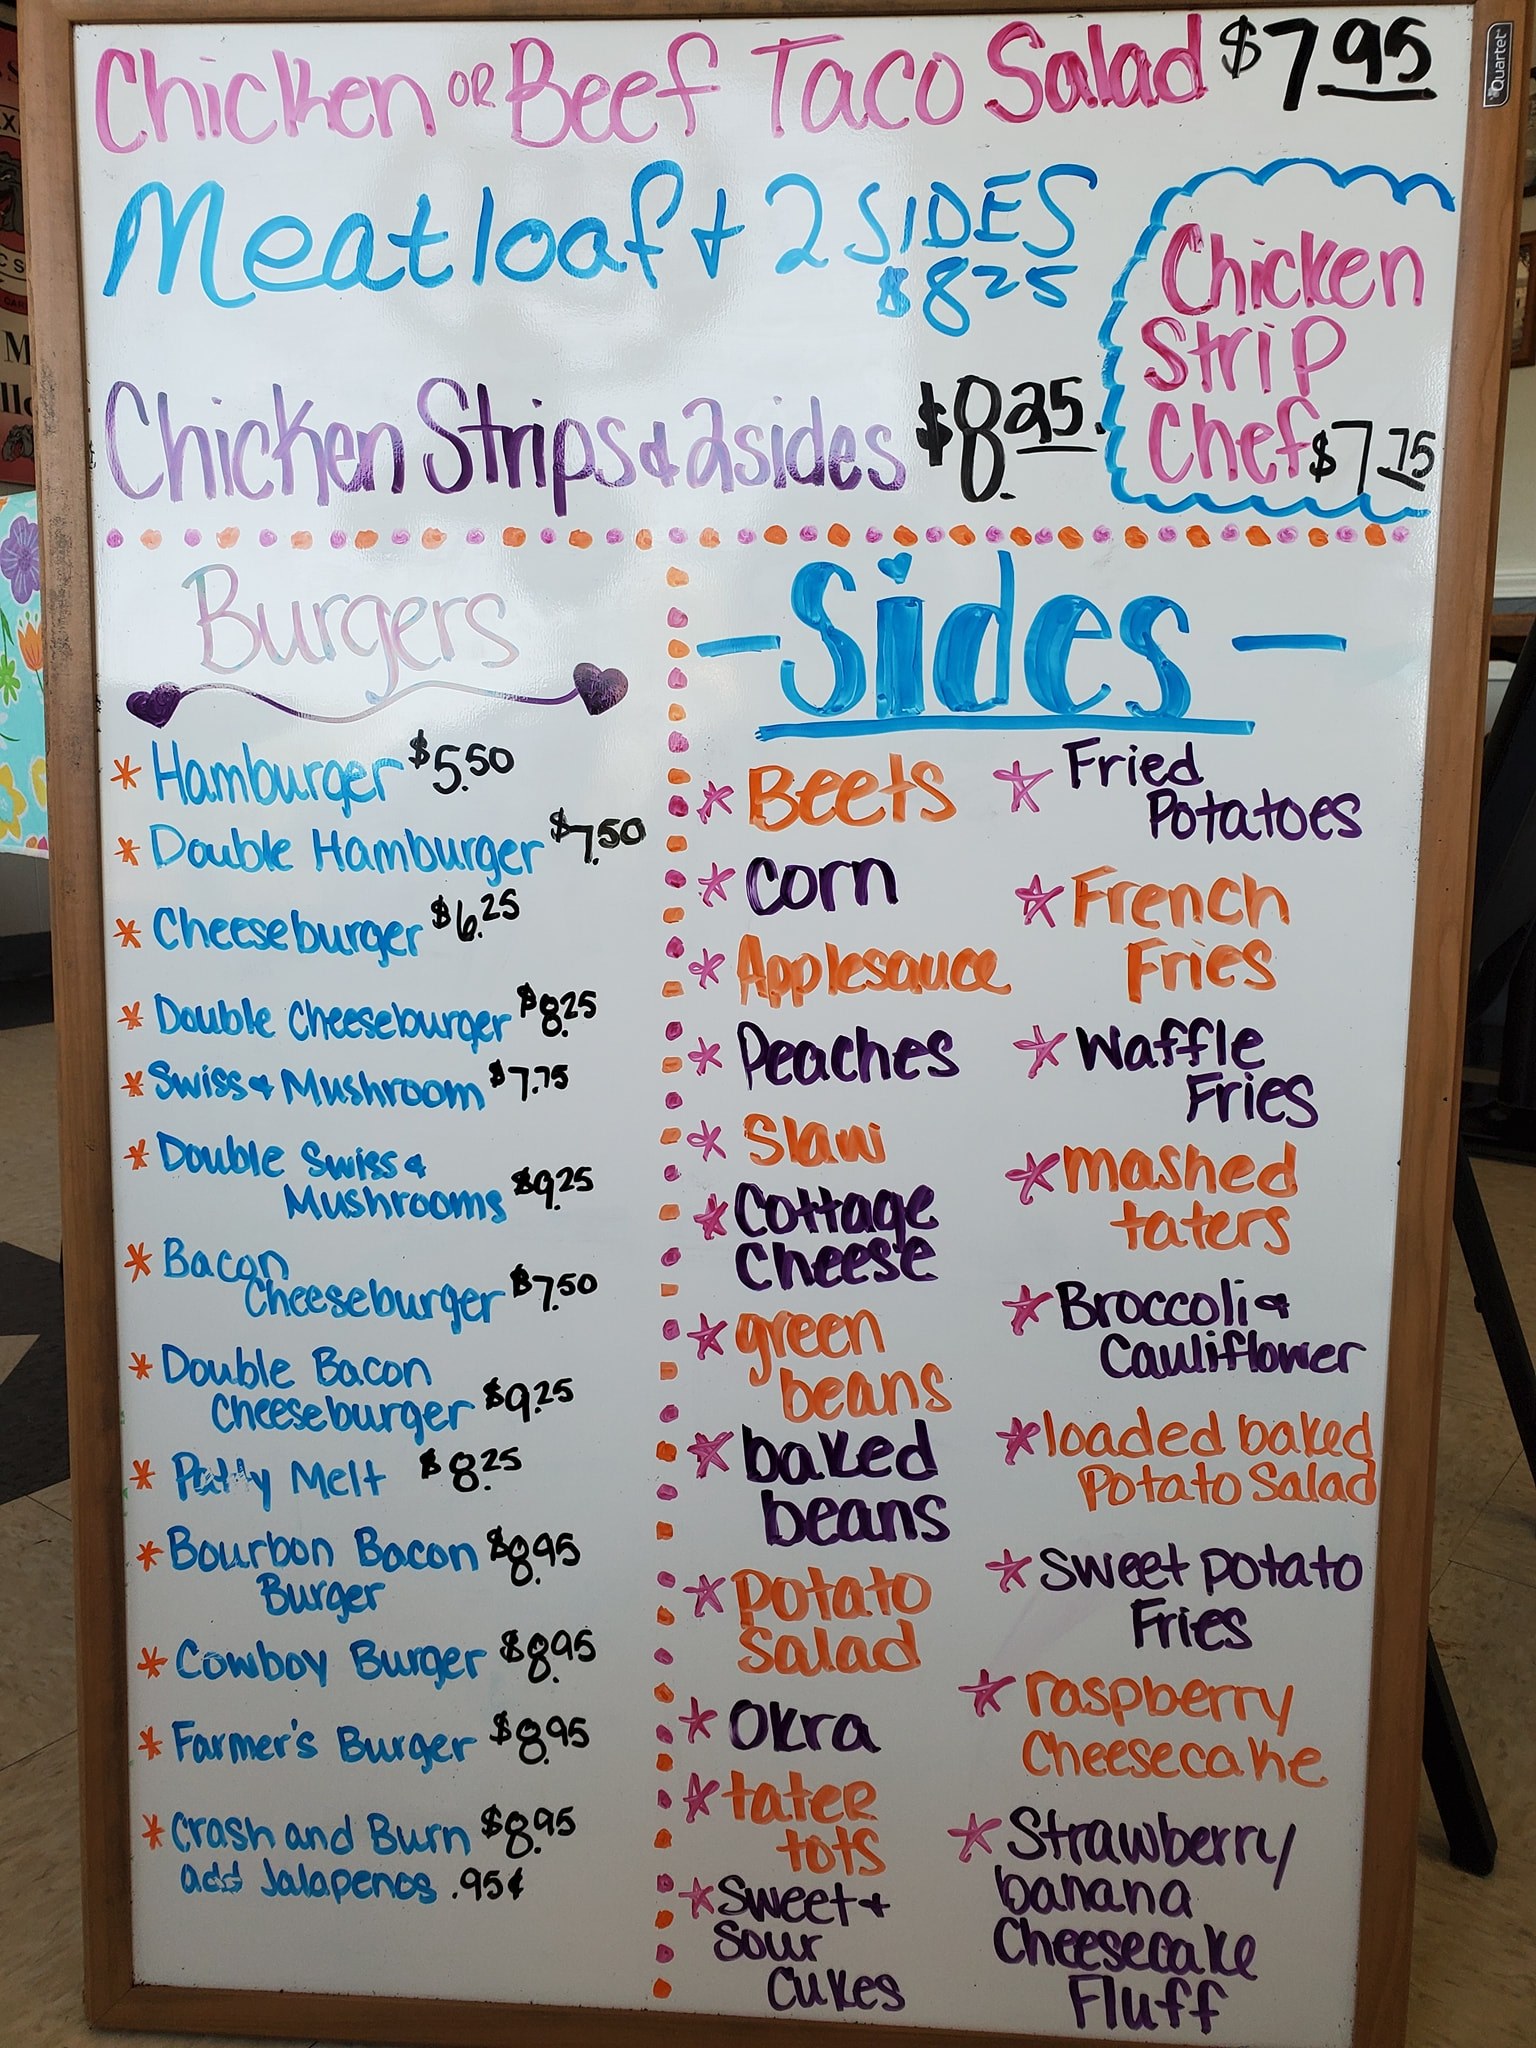 Chicken OR Beef Taco Salad $7.95
Quartet
Meatloaf & 2 SIDES
$8.25
Chicken
Strip
Chef $7.75
Chicken Strips & 2 sides $8.25
Burgers
* Hamburger $5.50
* Double Hamburger $7.50
* Cheeseburger $6.25
* Double Cheeseburger $8.25
* Swiss & Mushroom $7.75
* Double Swiss &
Mushrooms $9.25
* Bacon
Cheeseburger $7.50
* Double Bacon
Cheeseburger $9.25
* Patty Melt $8.25
* Bourbon Bacon $8.95
Burger
* Cowboy Burger $8.95
* Farmer's Burger $8.95
* Crash and Burn $8.95
add Jalapenos .95¢
- Sides -
* Beets
* Corn
* Applesauce
* Peaches
* Slaw
* Cottage
Cheese
* green
beans
* baked
beans
* Potato
Salad
* Okra
* tater
tots
* Sweet &
Sour
Cukes
* Fried
Potatoes
* French
Fries
* Waffle
Fries
* mashed
taters
* Broccoli &
Cauliflower
* loaded baked
Potato Salad
* Sweet Potato
Fries
* raspberry
Cheesecake
* Strawberry
banana
Cheesecake
Fluff